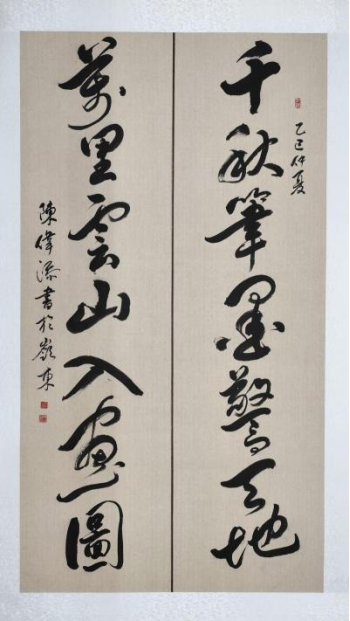 乙巳仲夏
千秋筆墨驚天地
萬里雲山入畫圖
陳偉添書於嶺東